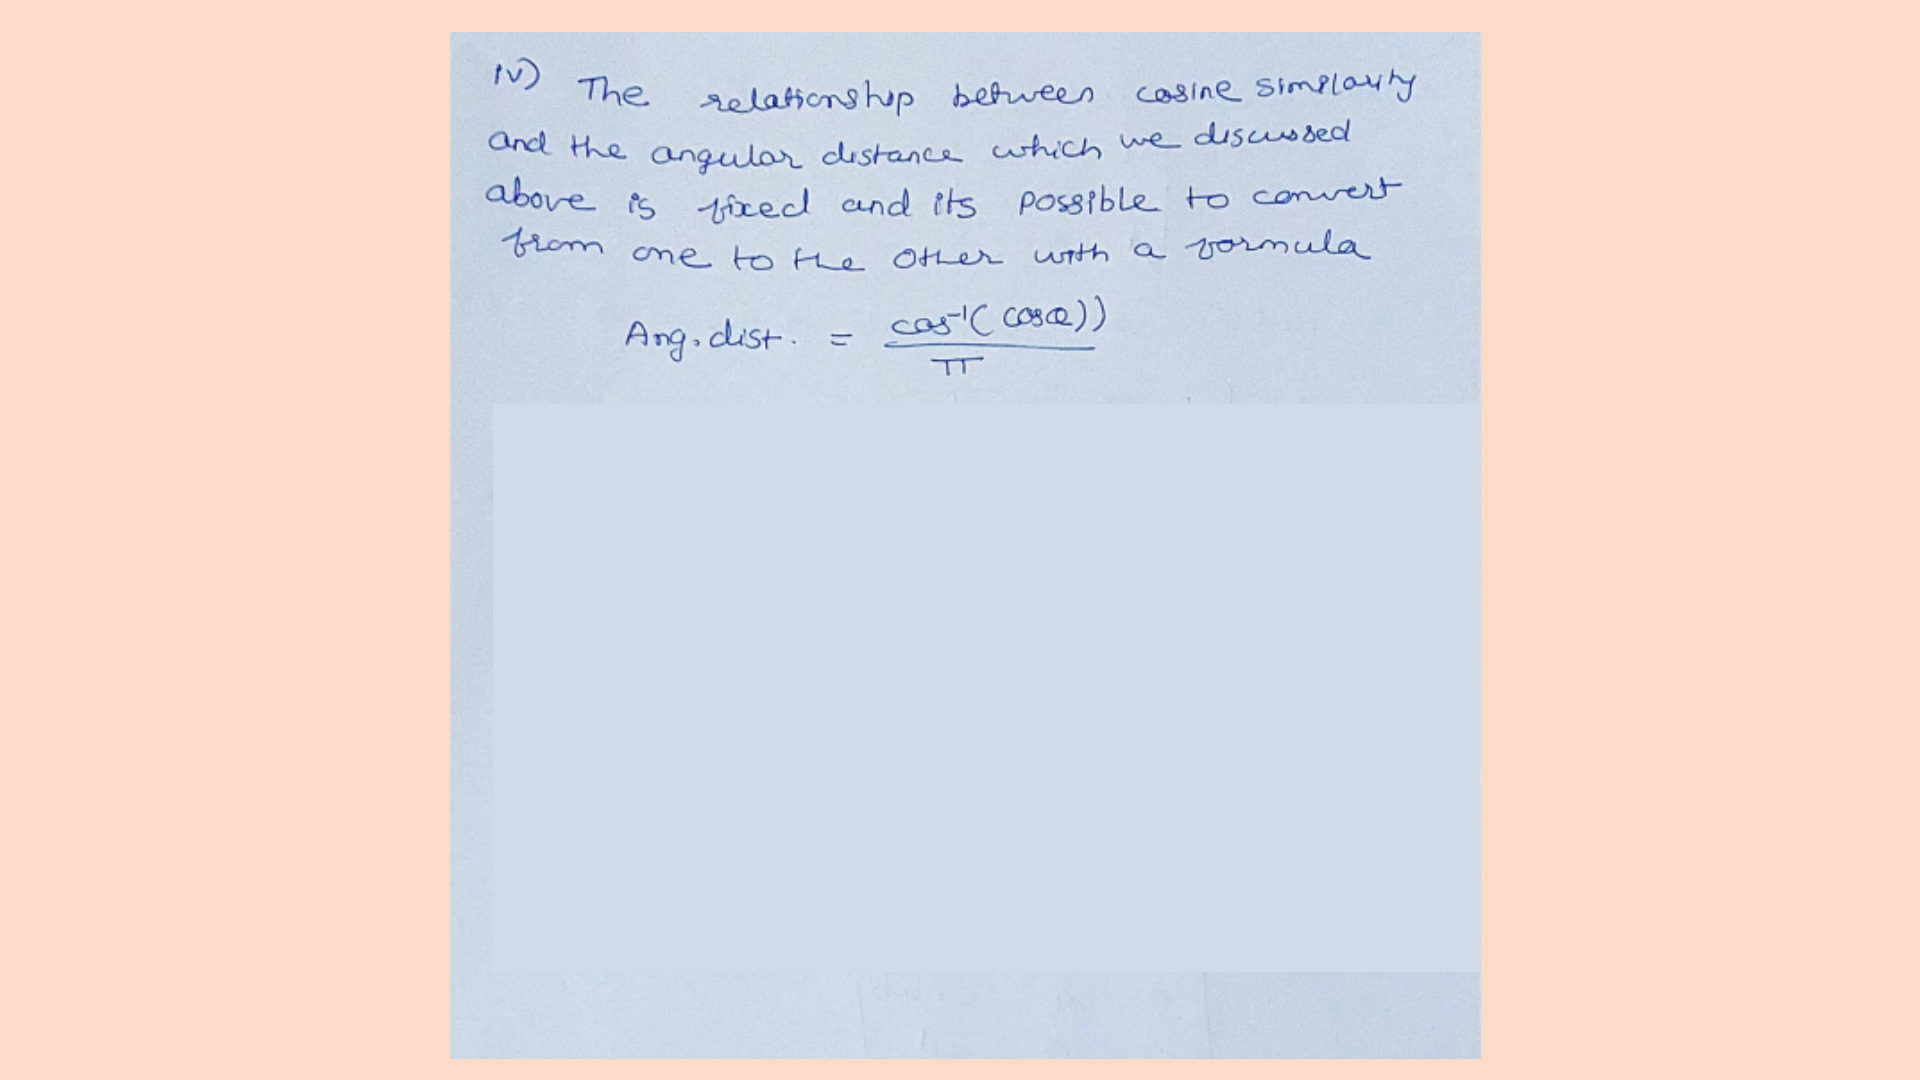 iv) The relationship between cosine similarity
and the angular distance which we discussed
above is fixed and its possible to convert
from one to the other with a formula
Ang. dist. = cos⁻¹( cosθ))
π